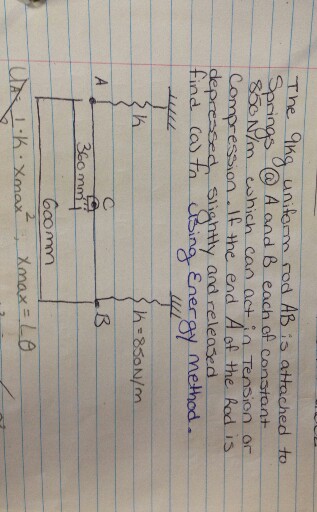 The 9kg uniform rod AB is attached to
springs @ A and B each of constant
850 N/m which can act in Tension or
Compression. If the end A of the Rod is
depressed slightly and released
find (a) fn using Energy method.
K
K = 850N/m
A
C
B
360mm
600mm
UA = 1 · K · Xmax², Xmax = Lθ